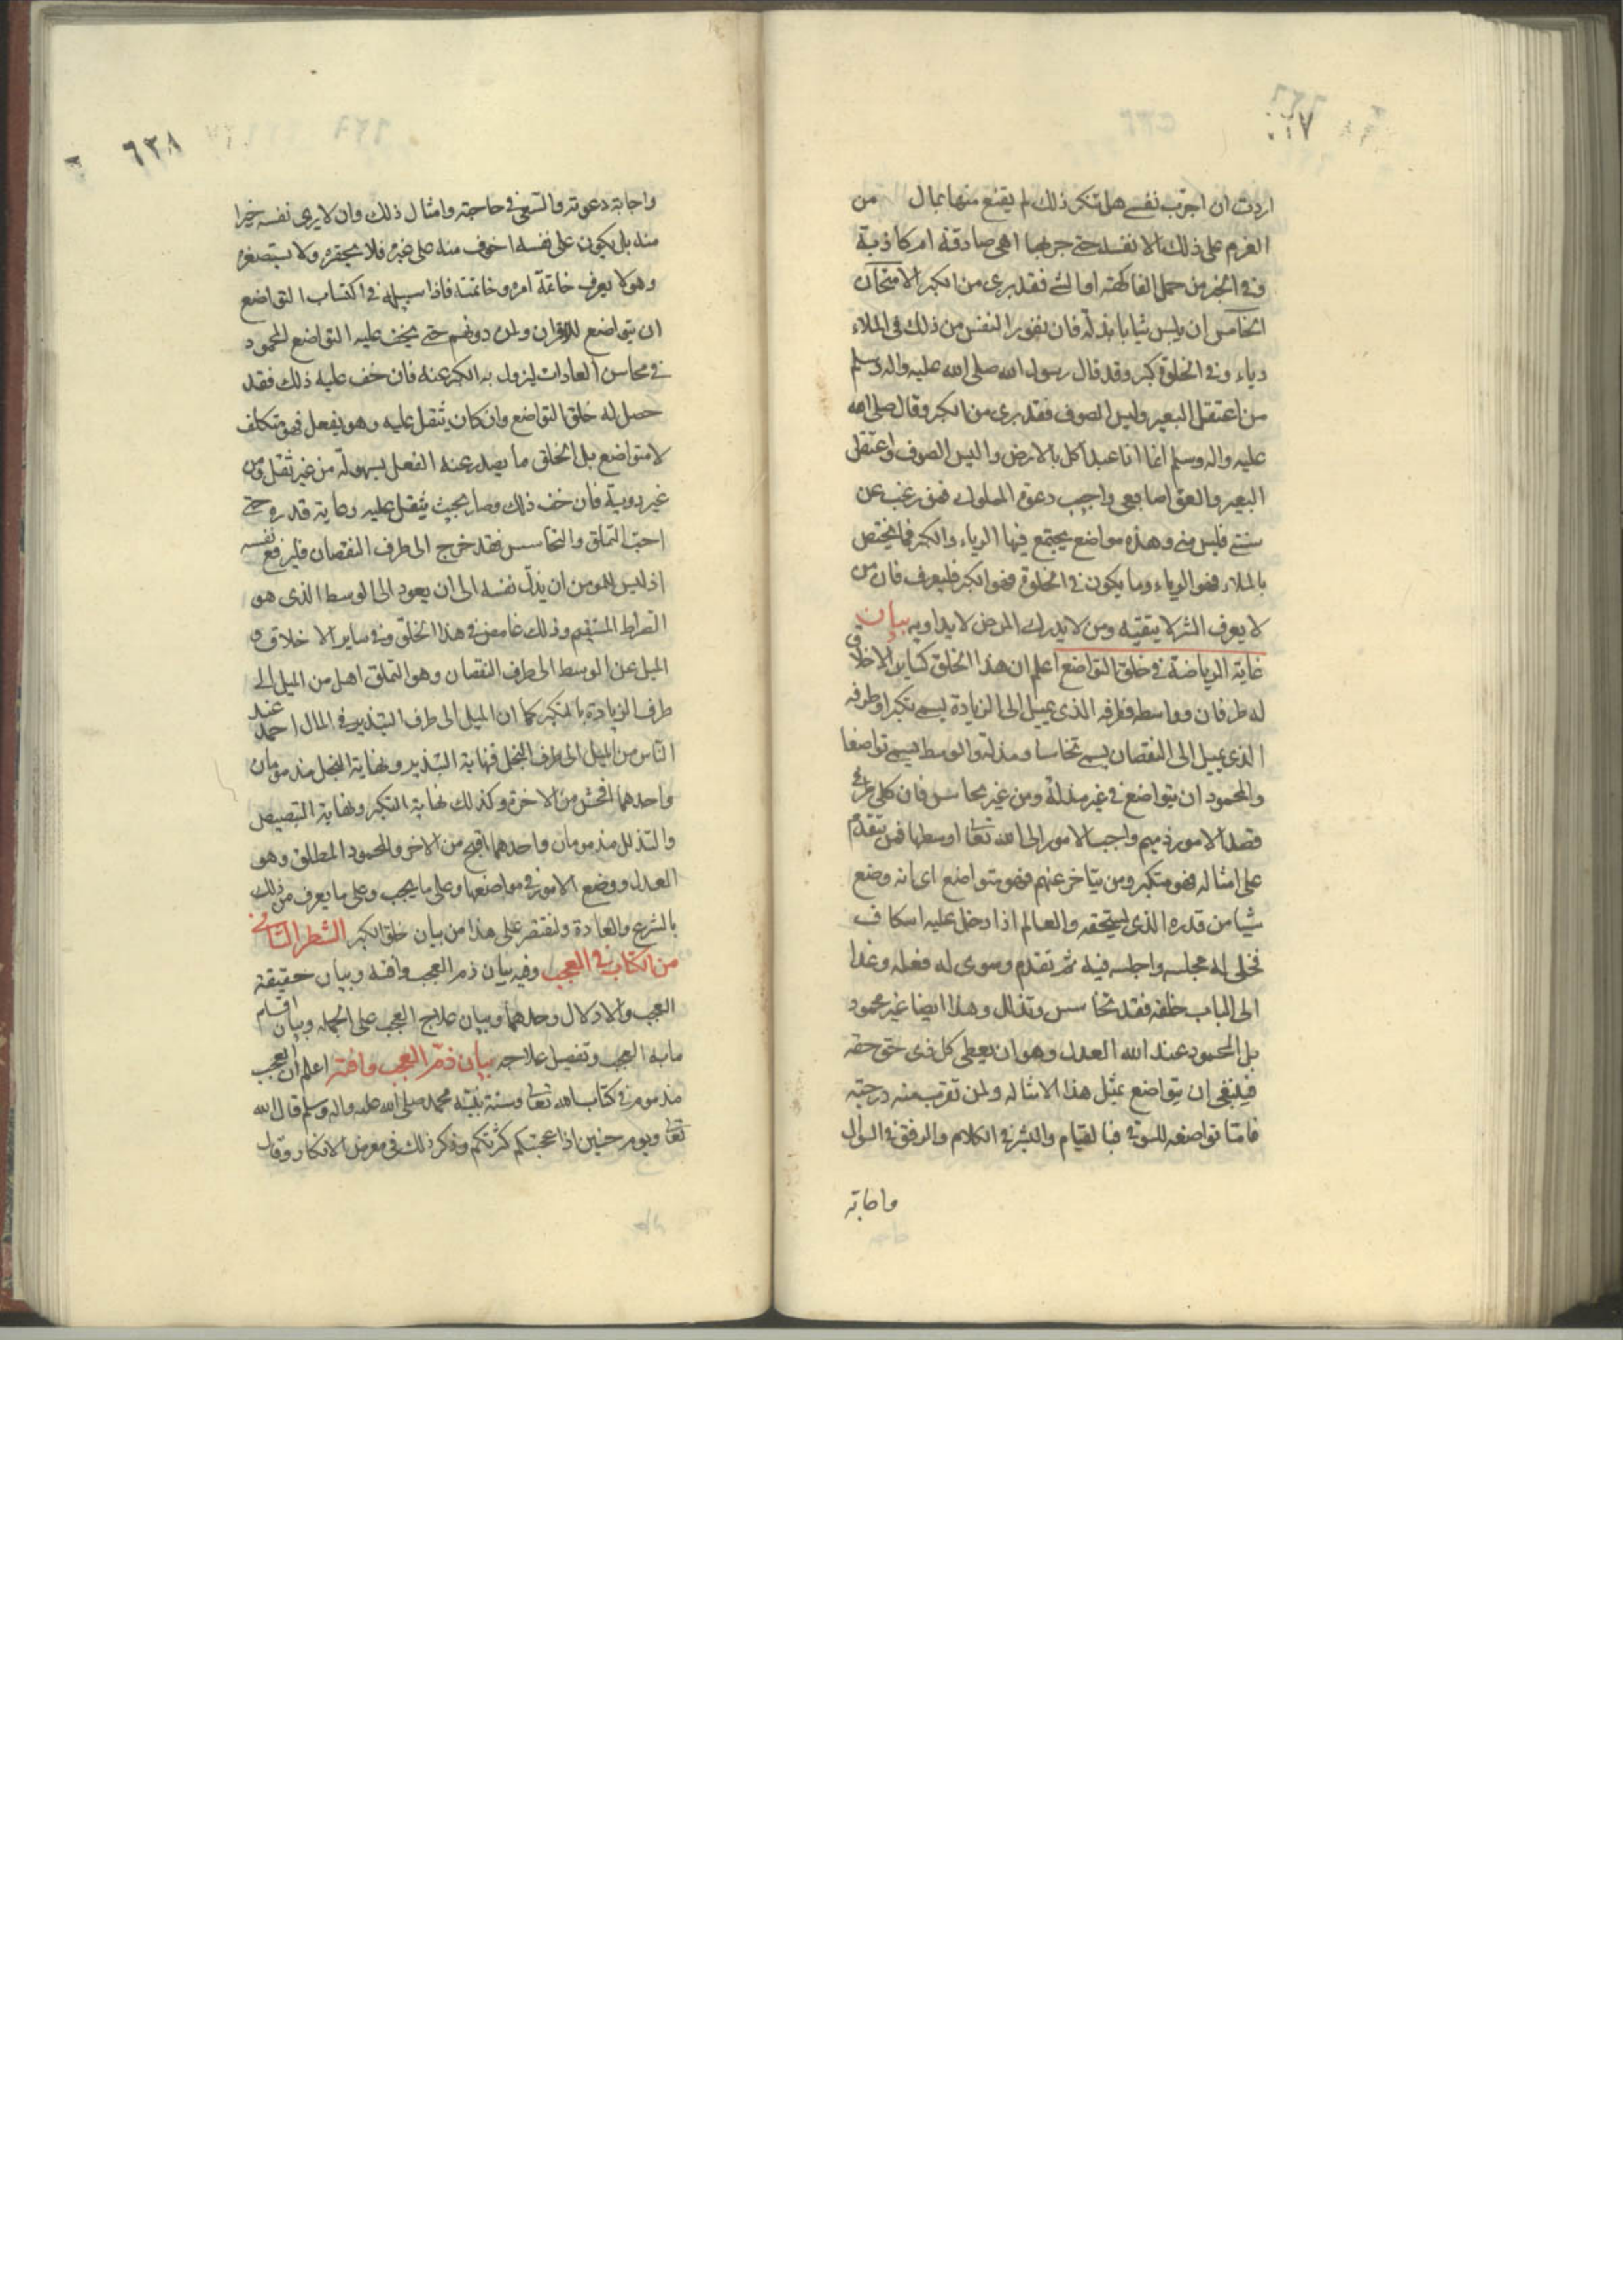 اردت ان اجرب نفسي هل تنكر ذلك لم يقنع منها بما ل من
العزم على ذلك الا نفسه حتى جربها اهى صادقة ام كاذبة
وفي الخبر من حمل الفاكهته او الشئ فقد برى من الكبر الامتحان
الخامس ان يلبس ثيابا بذلة فان نفور النفس من ذلك في الملاء
رياء وفي الخلوة كبر وقد قال رسول الله صلى الله عليه واله وسلم
من اعتقل البعير ولبس الصوف فقد برى من الكبر وقال صلى الله
عليه واله وسلم انما انا عبد اكل بالارض والبس الصوف واعتقل
البعير والعق اصابعى واجيب دعوة المملوك فمن رغب عن
سنتى فليس منى وهذه مواضع يجتمع فيها الرياء والكبر فما يختص
بالملاء فهو الرياء وما يكون في الخلوة فهو الكبر فليعرف فان من
لا يعرف الشر لا يتقيه ومن لا يدرك المرض لا يداويه بيان
غاية الرياضة في خلق التواضع اعلم ان هذا الخلق كساير الاخلاق
له طرفان وواسطه فطرفه الذى يميل الى الزيادة يسمى تكبرا وطرفه
الذى يميل الى النقصان يسمى تخاسسا ومذلة والوسط يسمى تواضعا
والمحمود ان يتواضع في غير مذلة ومن غير تخاسس فان كلى طرفى
قصد الامور ذميم واحب الامور الى الله تعا اوسطها فمن يتقدم
على امثاله فهو متكبر ومن يتاخر عنهم فهو متواضع اى انه وضع
شيا من قدره الذى يستحقه والعالم اذا دخل عليه اسكاف
فتخلى له مجلسه واجلسه فيه ثم تقدم وسوى له فعله وغدا
الى الباب خلفه فقد تخاسس وتذلل وهذا ايضا غير محمود
بل المحمود عند الله العدل وهو ان يعطى كل ذى حق حقه
فينبغى ان يتواضع بمثل هذا الامثاله ولمن تقرب منه درجته
فامتا تواضعه للسوقى فبالقيام والبشر في الكلام والرفق في السوال
واجابة
٦٣٨
واجابة دعوته والسعى في حاجته وامثال ذلك وان لا يرى نفسه خيرا
منه بل يكون على نفسه اخوف منه على غيره فلا يحقره ولا يستصغره
وهو لا يعرف خاتمة امره وخاتمته فاذا سبيله في اكتساب التواضع
ان يتواضع للاقران ولمن دونهم حتى يخف عليه التواضع المحمود
في محاسن العادات ليزول به الكبر عنه فان خف عليه ذلك فقد
حصل له خلق التواضع وان كان يثقل عليه وهو يفعل فهو متكلف
لا متواضع بل الخلق ما يصدر عنه الفعل بسهولة من غير ثقل ومن
غير روية فان خف ذلك وصار بحيث يثقل عليه رعاية قدره حتى
احب التملق والتخاسس فقد خرج الى طرف النقصان فليرفع نفسه
اذ ليس للمومن ان يذل نفسه الى ان يعود الى الوسط الذى هو
الصراط المستقيم وذلك غامض في هذا الخلق وفي ساير الاخلاق و
الميل عن الوسط الى طرف النقصان وهو التملق اهل من الميل الى
طرف الزيادة بالتكبر كما ان الميل الى طرف التبذير في المال احمد عند
الناس من الميل الى طرف البخل فنهاية التبذير ونهاية البخل مذمومان
واحدهما افحش من الاخرة وكذلك نهاية التكبر ونهاية التبصيص
والتذلل مذمومان واحدهما اقبح من الاخر والمحمود المطلق وهو
العدل ووضع الامور في مواضعها وعلى ما يجب وعلى ما يعرف من ذلك
بالشرع والعادة ولنقتصر على هذا من بيان خلق الكبر الشطر الثانى
من الكتاب في العجب وفيه بيان ذم العجب وافته وبيان حقيقة
العجب والادلال وحدهما وبيان علاج العجب على الجمله وبيان اقسام
مابه العجب وتفصيل علاجه بيان ذم العجب وافته اعلم ان العجب
مذموم في كتاب الله تعا وسنة نبيه محمد صلى الله عليه واله وسلم قال الله
تعا ويوم حنين اذا عجبتكم كثرتكم وذكر ذلك في معرض الانكار وقال